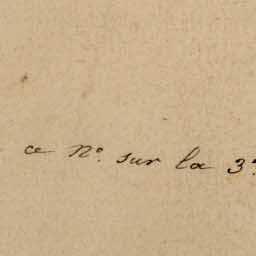 ce n° sur la 3e